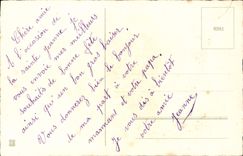 Chère amie
A l'occasion de
la sainte Jeanne, je
vous envoie mes meilleurs
souhaits de bonne fête
ainsi qu'un bon gros baiser.
Vous donnerez bien le bonjour
de ma part à votre
maman et votre papa.
Je vous dis à bientôt
votre amie
Jeanne